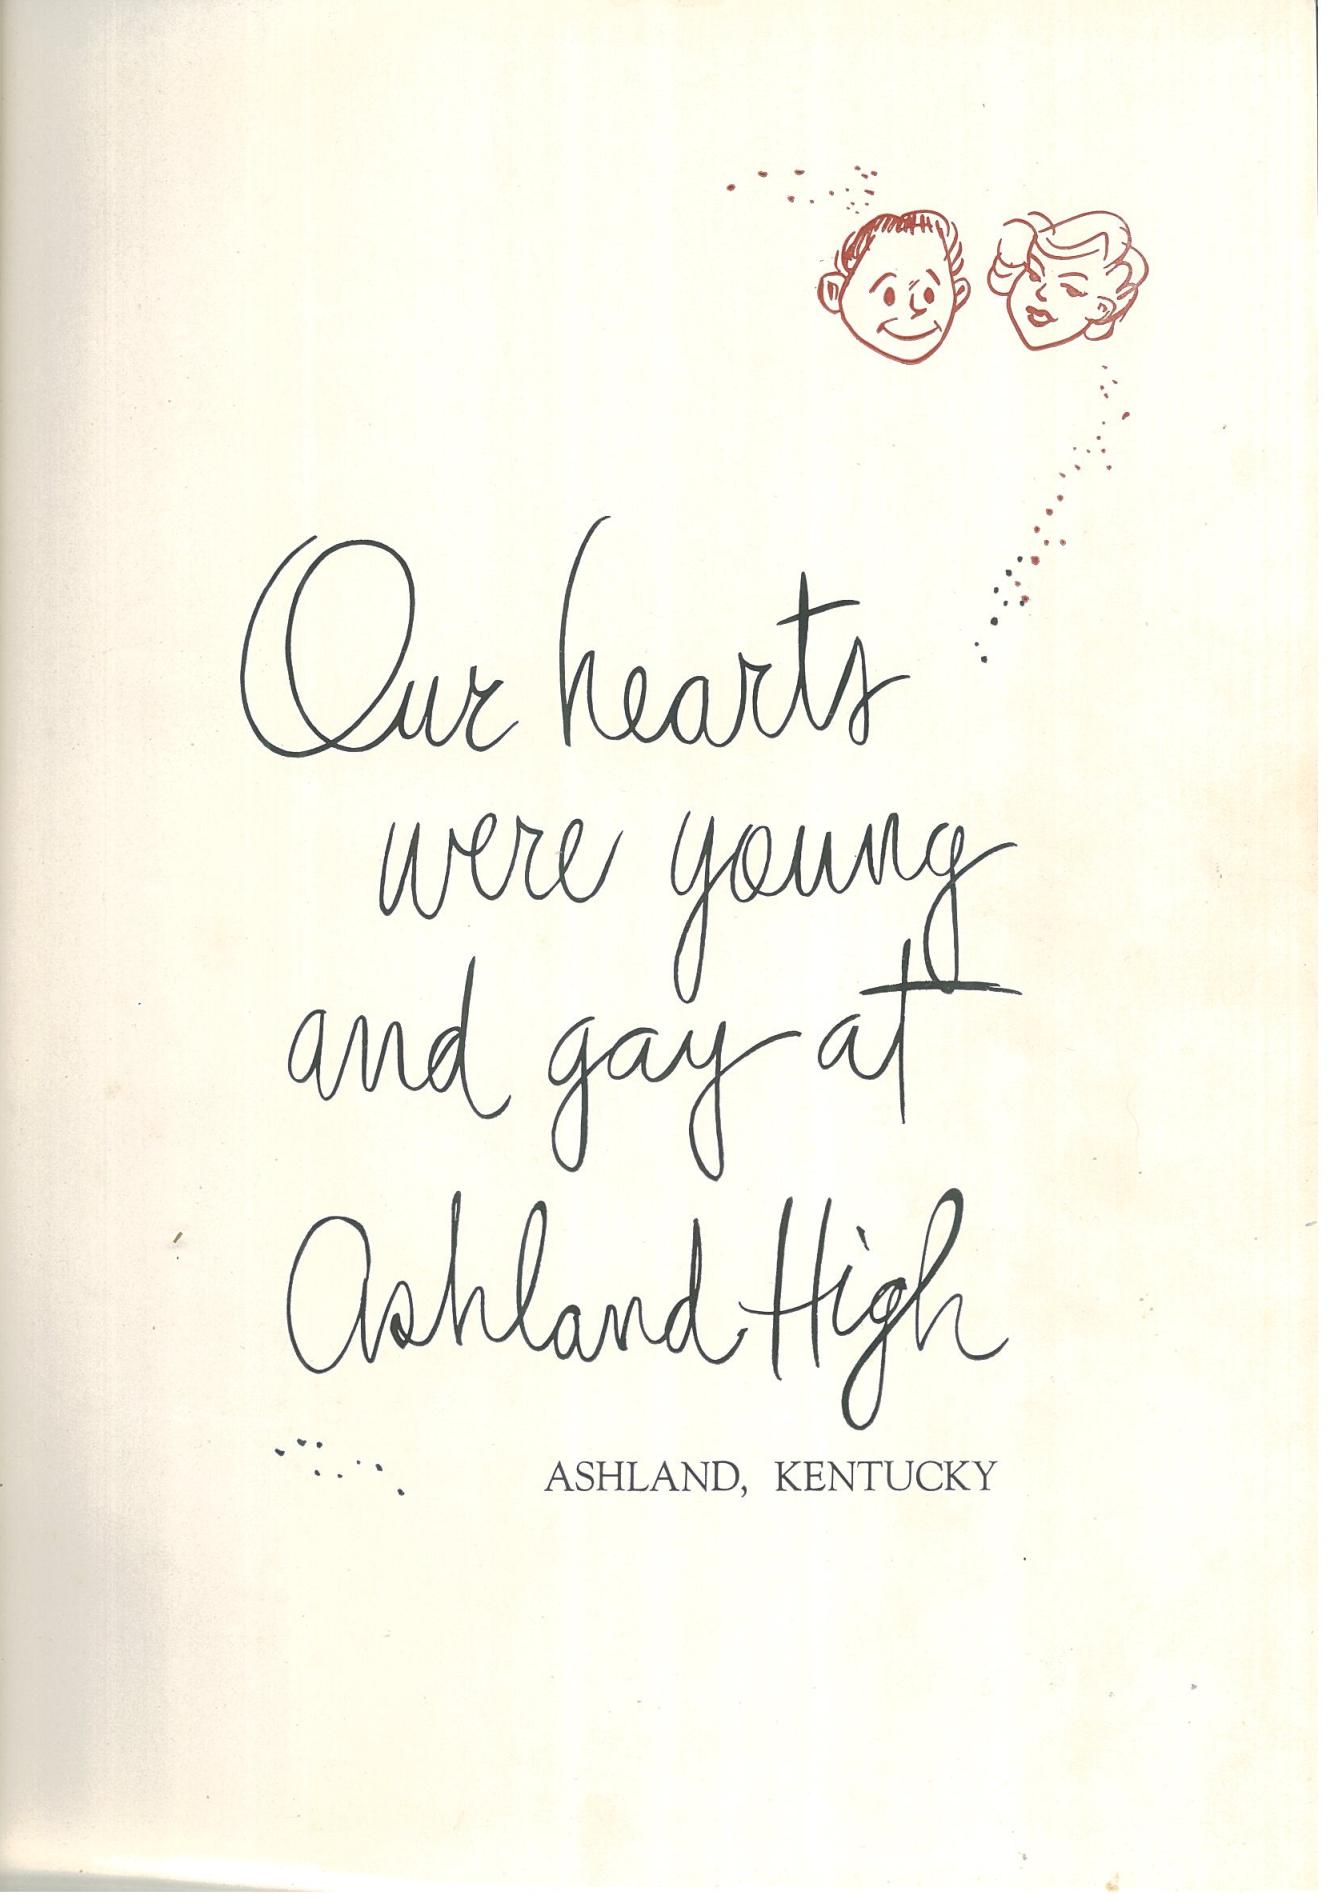 Our hearts
were young
and gay at
Ashland High
ASHLAND, KENTUCKY